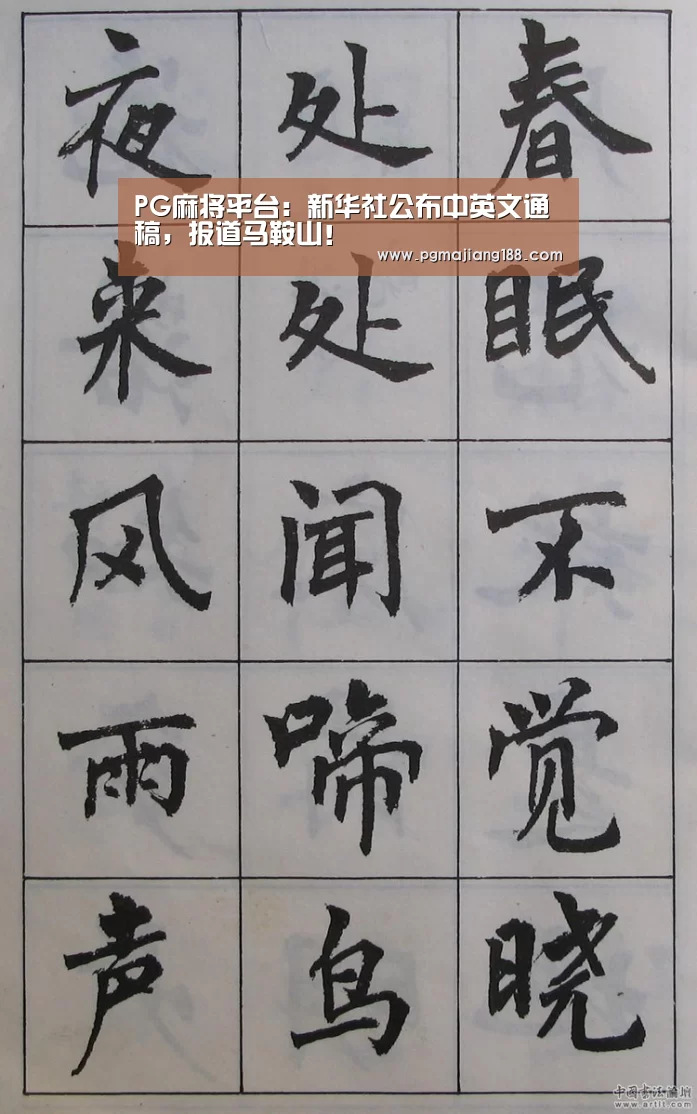 春眠不觉晓
处处闻啼鸟
夜来风雨声
PG麻将平台：新华社公布中英文通
稿，报道马鞍山！
www.pgmajiang188.com
中国书法论坛
www.artlt.com